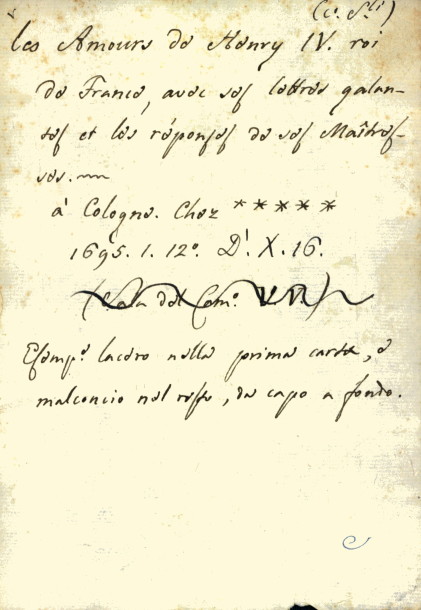 Les Amours de Henry IV. roi
de France, avec ses lettres galan-
tes et les réponses de ses Maîtres-
ses.
à Cologne. Chez * * * * *
1695. 1. 12º. D'. X. 16.
Esemp.º lacero nella prima carta, e
malconcio nel resto, da capo a fondo.